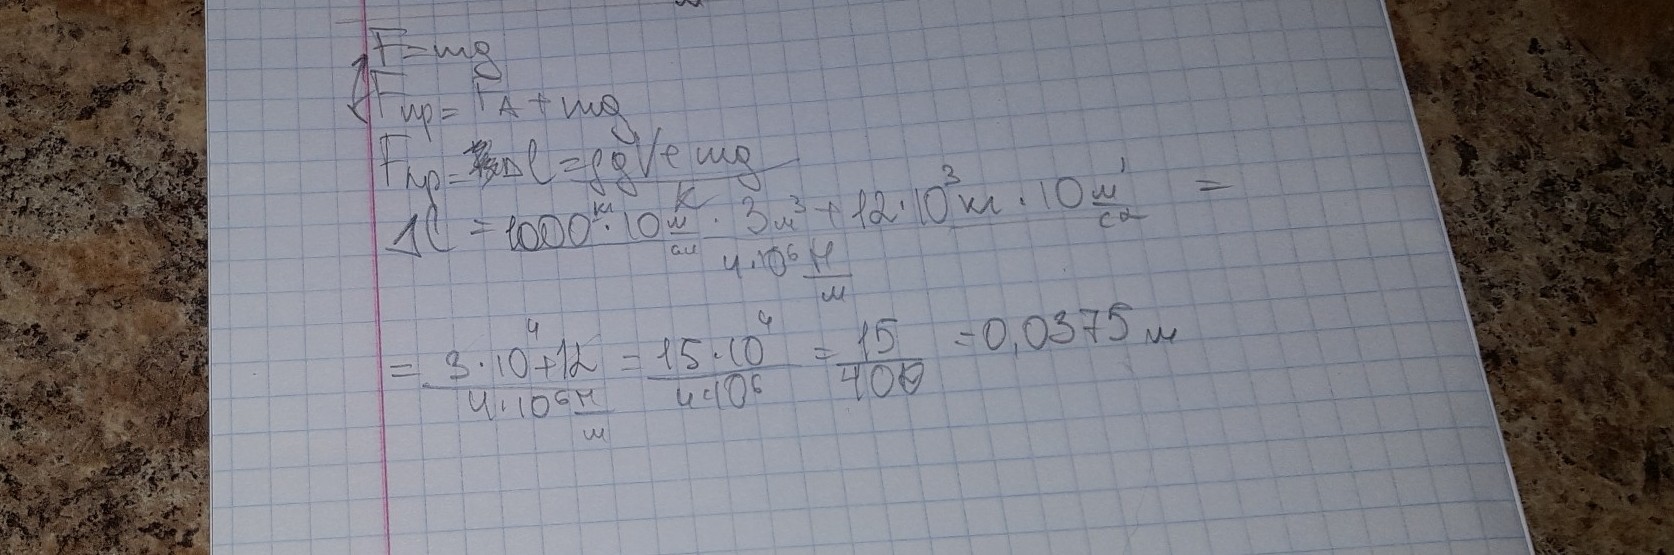 F=mg
Fпр= FA + mg
Fпр= Δl = ρgV+ mg / k
Δl = 1000 кг · 10 м/с² · 3м³ + 12·10³ кг · 10 м/с² / 4·10⁶ Н/м =
= 3·10⁴+12 / 4·10⁶ Н/м = 15·10⁴ / 4·10⁶ = 15 / 400 = 0,0375 м